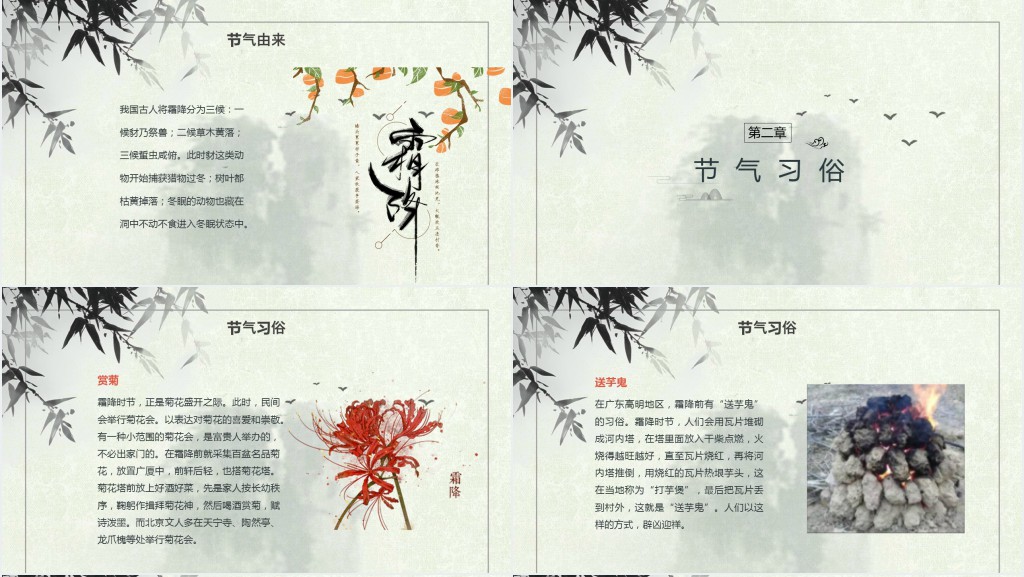 节气由来
我国古人将霜降分为三候：一
候豺乃祭兽；二候草木黄落；
三候蜇虫咸俯。此时豺这类动
物开始捕获猎物过冬；树叶都
枯黄掉落；冬眠的动物也藏在
洞中不动不食进入冬眠状态中。
霜降
第二章
节气习俗
节气习俗
赏菊
霜降时节，正是菊花盛开之际。此时，民间
会举行菊花会。以表达对菊花的喜爱和崇敬。
有一种小范围的菊花会，是富贵人举办的，
不必出家门的。在霜降前就采集百盆名品菊
花，放置广厦中，前轩后轻，也搭菊花塔。
菊花塔前放上好酒好菜，先是家人按长幼秩
序，鞠躬作揖拜菊花神，然后喝酒赏菊，赋
诗泼墨。而北京文人多在天宁寺、陶然亭、
龙爪槐等处举行菊花会。
霜降
节气习俗
送芋鬼
在广东高明地区，霜降前有“送芋鬼”
的习俗。霜降时节，人们会用瓦片堆砌
成河内塔，在塔里面放入干柴点燃，火
烧得越旺越好，直至瓦片烧红，再将河
内塔推倒，用烧红的瓦片热埌芋头，这
在当地称为“打芋煲”，最后把瓦片丢
到村外，这就是“送芋鬼”。人们以这
样的方式，辟凶迎祥。